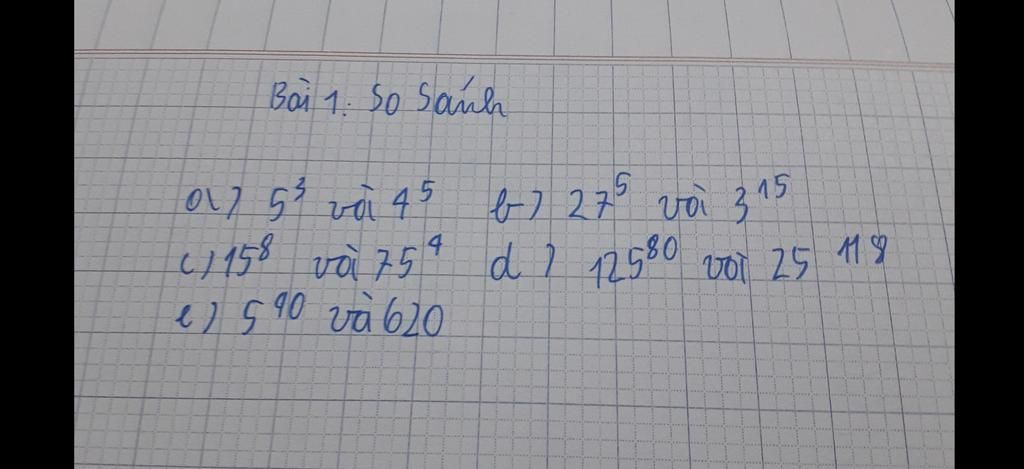 Bài 1: So Sánh
a) 5³ với 4⁵ b) 27⁵ với 3¹⁵
c) 15⁸ với 75⁴ d) 125⁸⁰ với 25¹¹⁸
e) 5⁴⁰ và 620